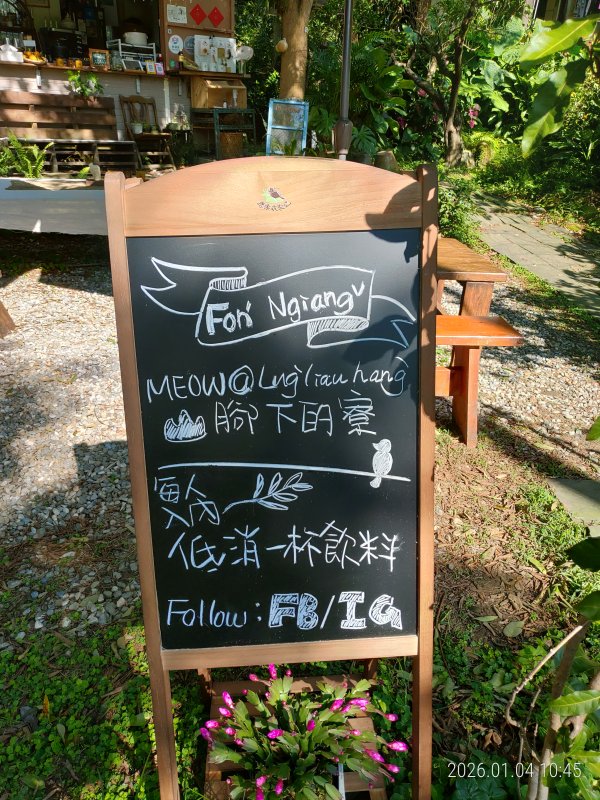 Fonˊ Ngiangˇ
MEOW@Lugˋliau hangˋ
腳下的寮
低消一杯飲料
Follow: FB/IG
2026.01.04 10:45